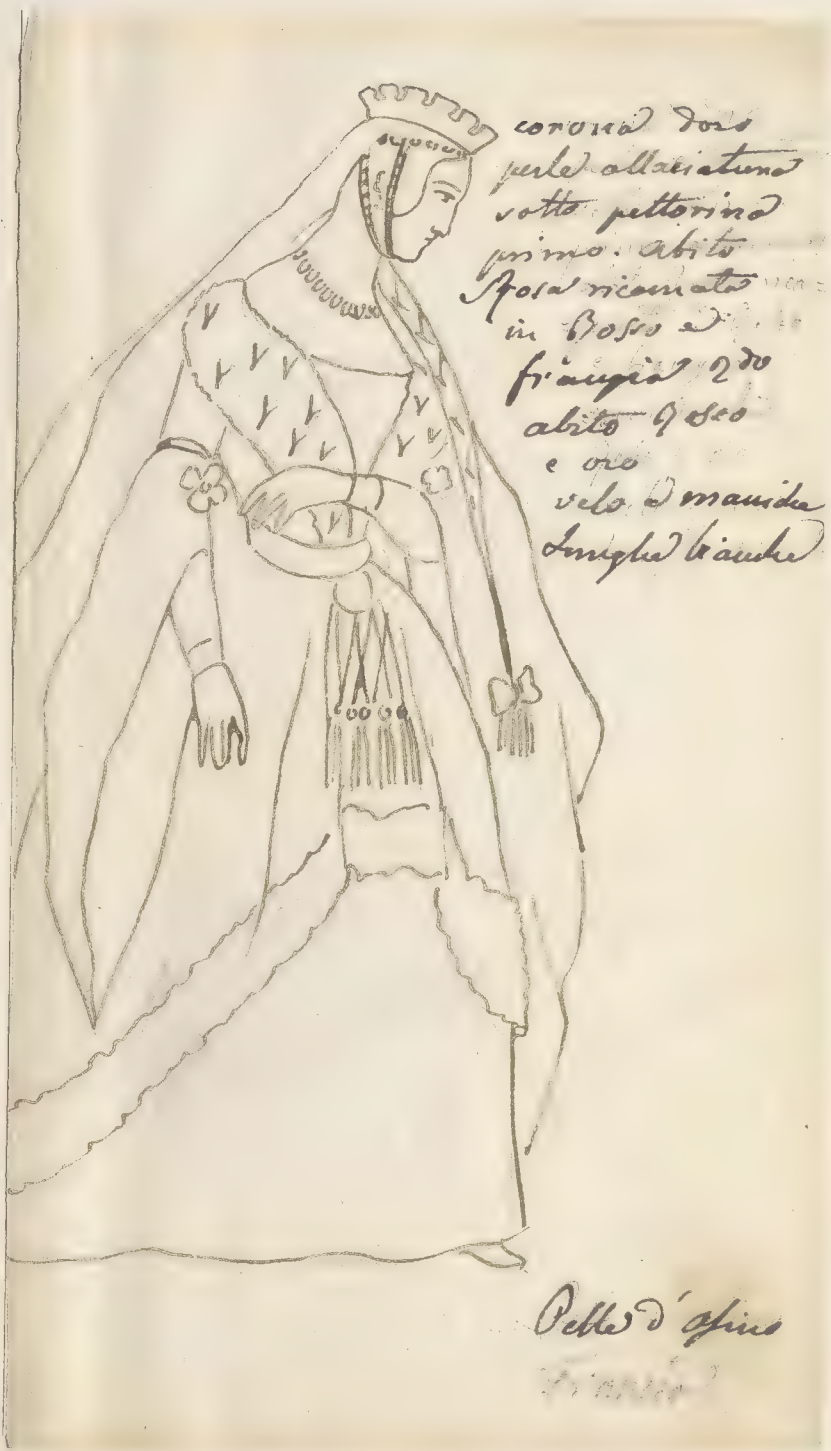 corona doro
perle allaciatura
sotto pettorina
primo. abito
Rosa ricamata
in Rosso e
frangia 2do
abito
e oro
velo e maniche
lunghe bianche
Pelle d'asino